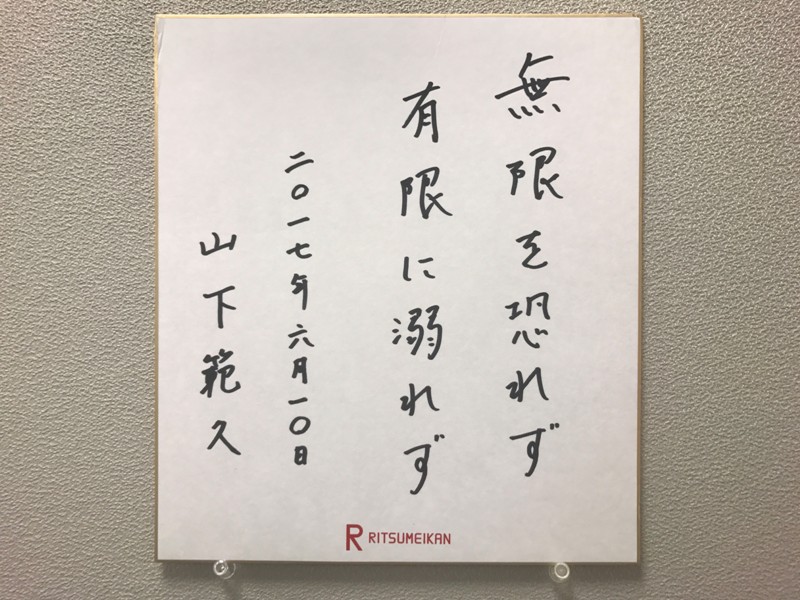 無限を恐れず
有限に溺れず
二〇一七年六月一〇日
山下範久
R RITSUMEIKAN